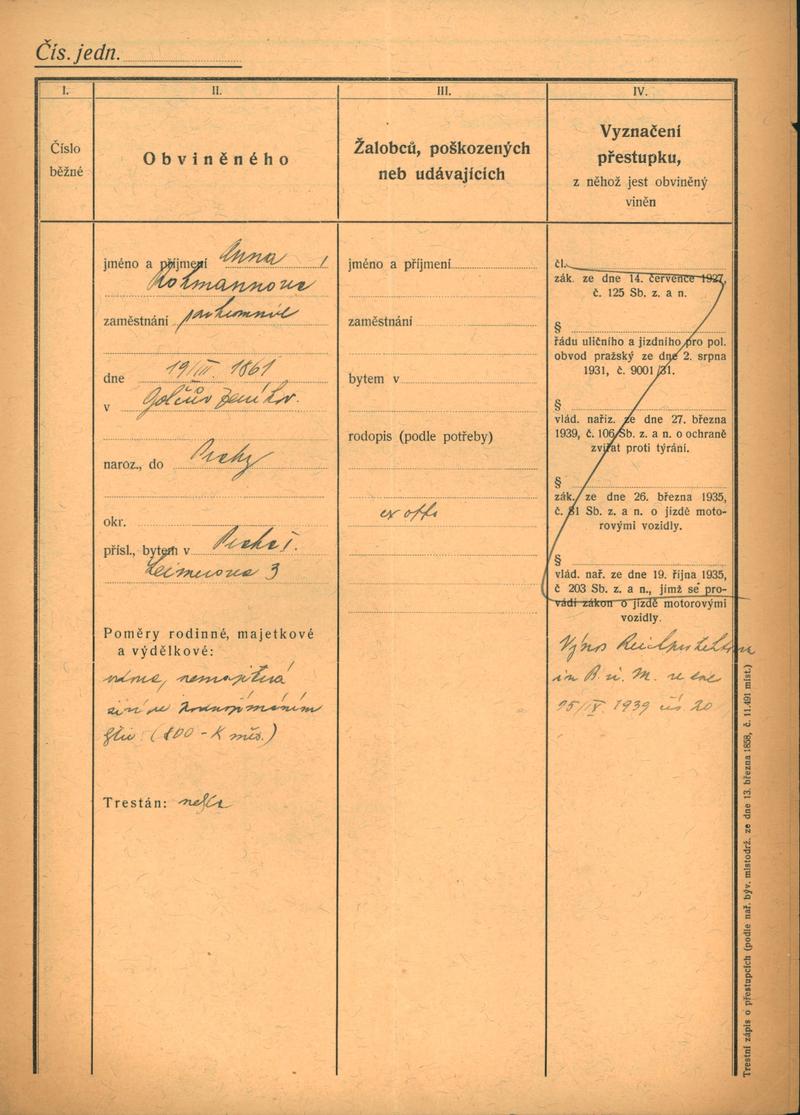 Čís. jedn.
I.
II.
III.
IV.
Číslo
běžné
Obviněného
Žalobců, poškozených
neb udávajících
Vyznačení
přestupku,
z něhož jest obviněný
viněn
jméno a příjmení Anna
zaměstnání
dne 19/III. 1861
v Golčův Jeníkov.
naroz., do Prahy
okr.
přísl., bytem v Praha I.
3
Poměry rodinné, majetkové
a výdělkové:
vdova, nemajetná
živí se pronajímáním
bytu (800 - K měs.)
Trestán:
jméno a příjmení
zaměstnání
bytem v
rodopis (podle potřeby)
ex offo
čl.
zák. ze dne 14. července 1927,
č. 125 Sb. z. a n.
§
řádu uličního a jízdního pro pol.
obvod pražský ze dne 2. srpna
1931, č. 9001/31.
§
vlád. nařiz. ze dne 27. března
1939, č. 106 Sb. z. a n. o ochraně
zvířat proti týrání.
§
zák. ze dne 26. března 1935,
č. 81 Sb. z. a n. o jízdě moto-
rovými vozidly.
§
vlád. nař. ze dne 19. října 1935,
č 203 Sb. z. a n., jímž se pro-
vádí zákon o jízdě motorovými
vozidly.
Výnos Reichsprotektora
in B. u. M. ze dne
15/IX. 1939 čís 20
Trestní zápis o přestupcích (podle nař. býv. místodrž. ze dne 13. března 1858, č. 11.491 míst.)